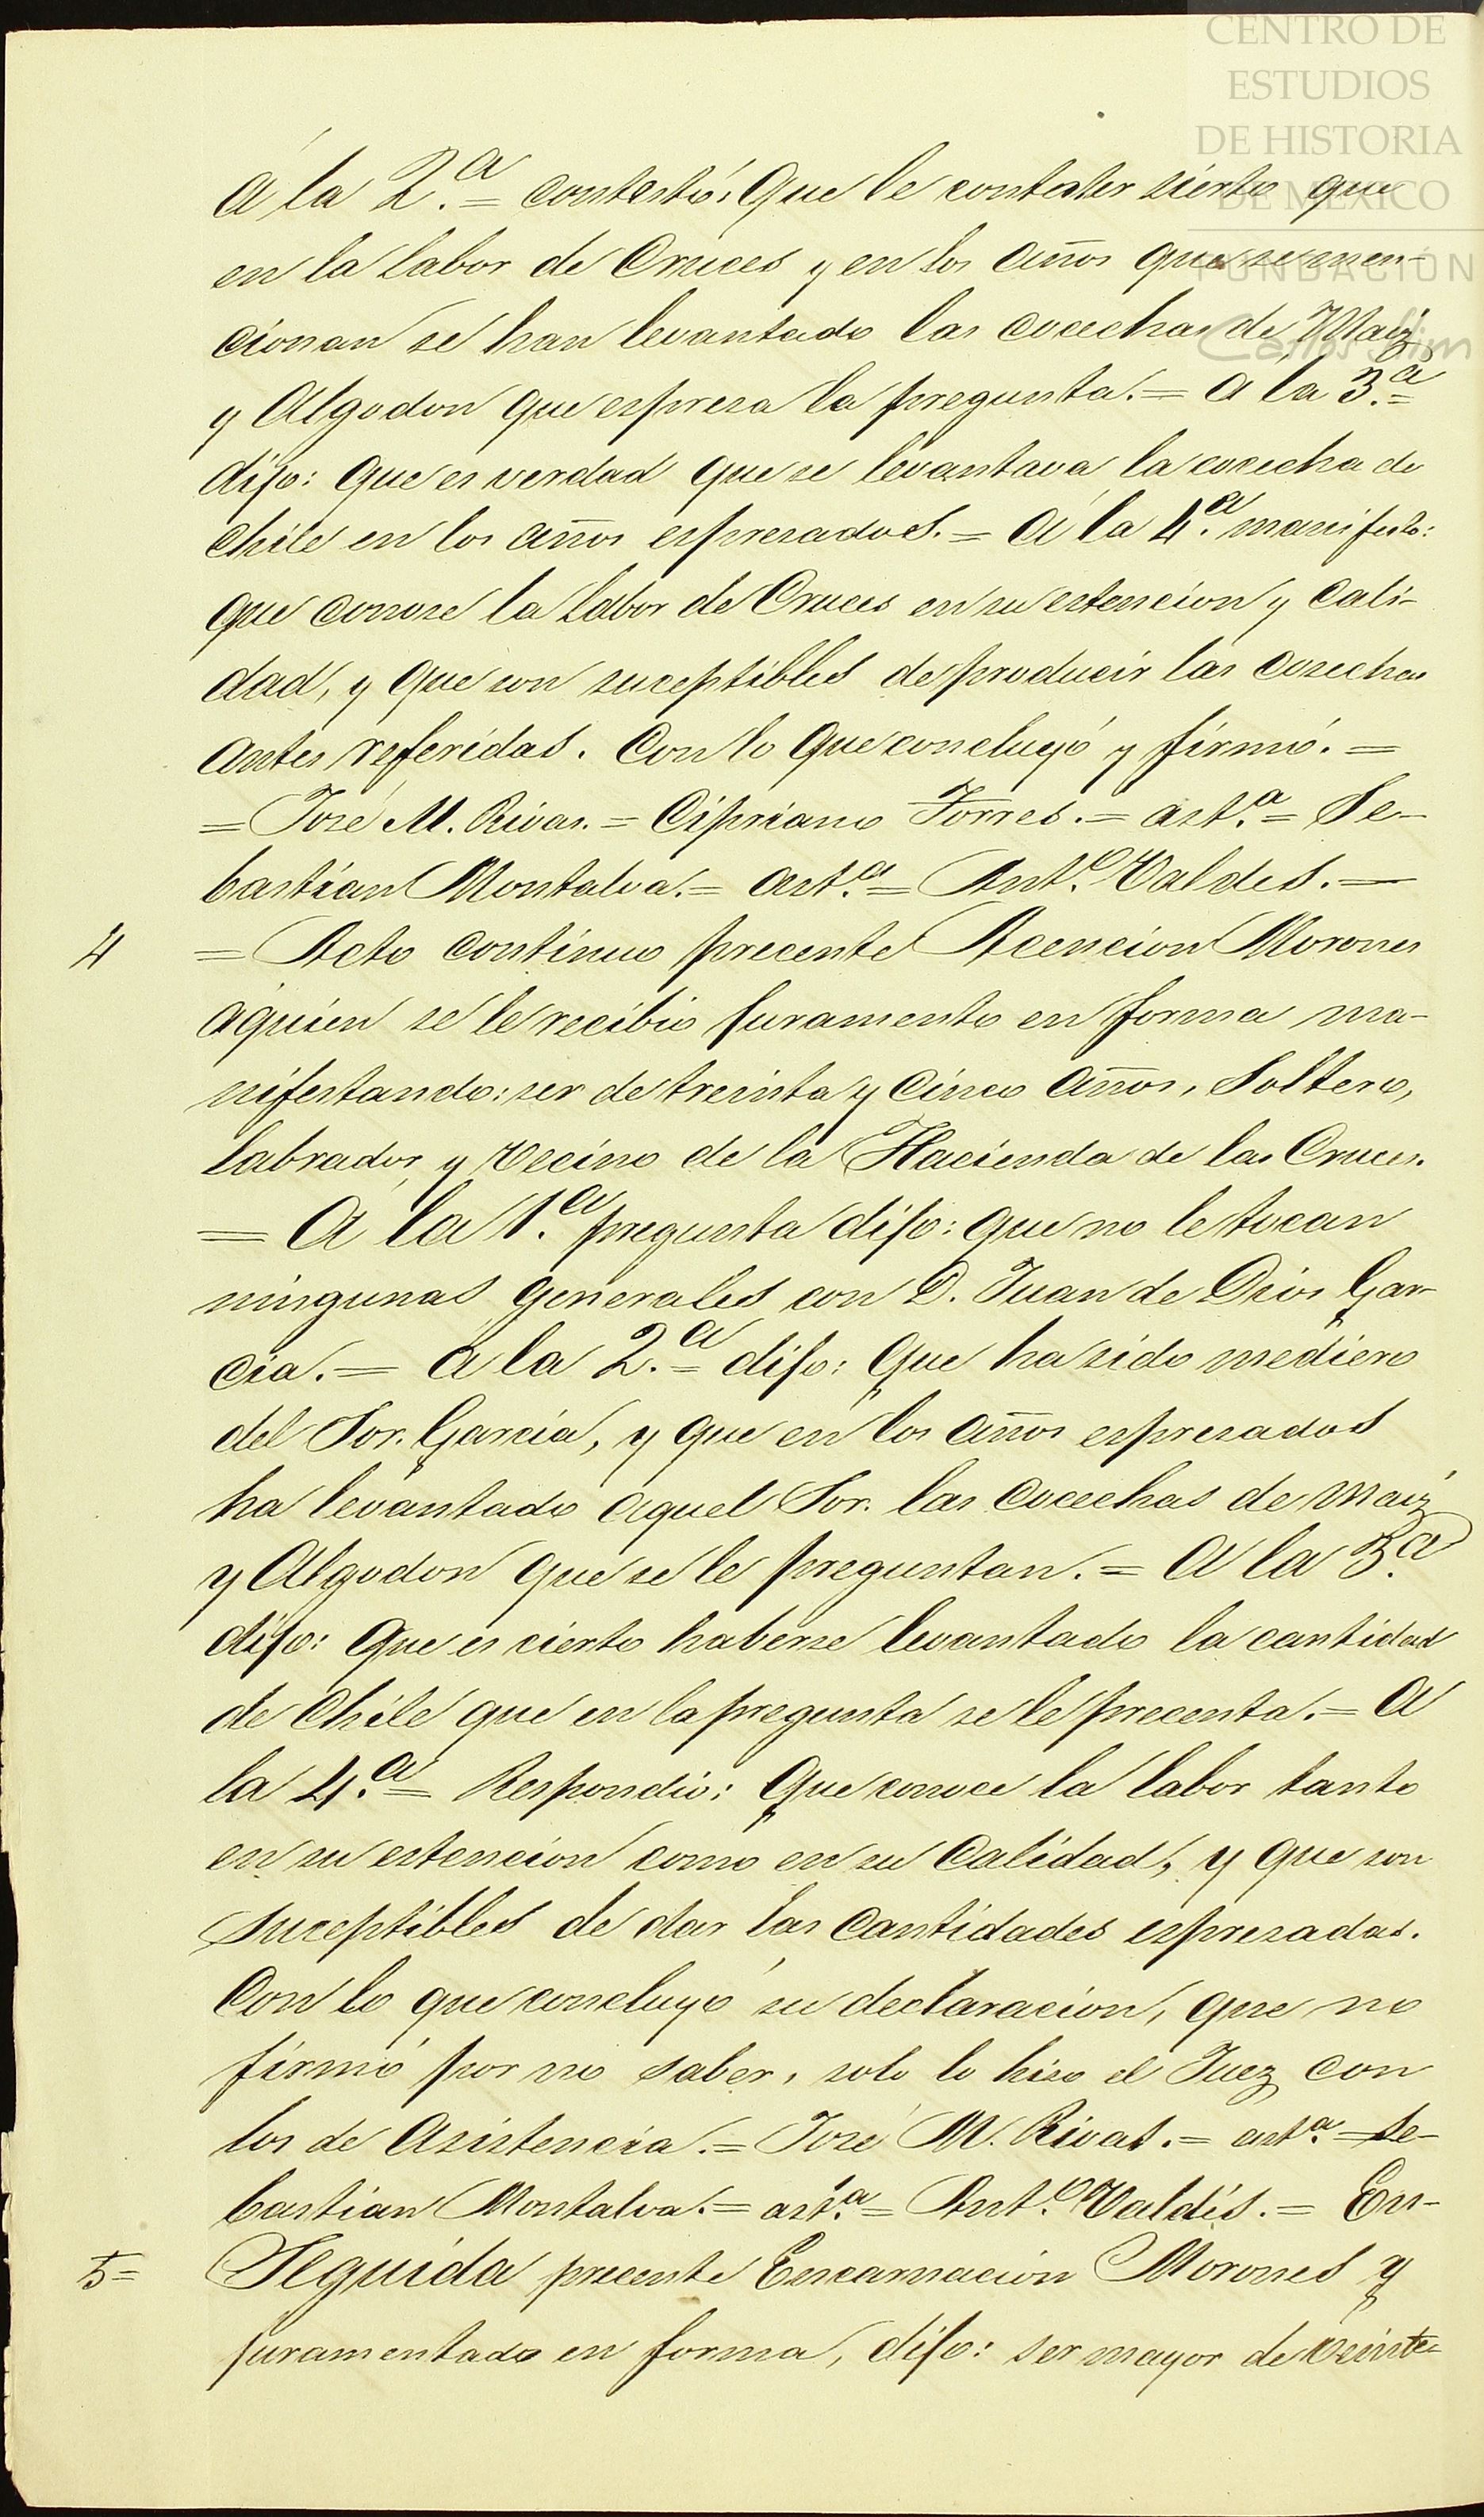 CENTRO DE
ESTUDIOS
DE HISTORIA
DE MÉXICO
FUNDACIÓN
Carlos Slim
á la 2.ª = contestó: Que le consta ser sierto que
en la labor de Cruces y en los años que se men-
cionan se han levantado las cocechas de Maiz
y Algodon que espresa la pregunta. = á la 3.ª =
dijo: que es verdad que se levantava la cocecha de
Chile en los años espresados. = á la 4.ª manifesto:
que conose la labor de Cruces en su estencion y cali-
dad, y que son suceptibles de producir las cosechas
antes referidas. Con lo que concluyó y firmó. =
= José M. Rivas. = Cipriano Torres. = ast.ª = Se-
bastian Montalva. = ast.ª = Ant.º Valdes. =
4 = Acto continuo precente Acencion Morones
aquien se le recibio juramento en forma ma-
nifestando: ser de treinta y cinco años, Soltero,
labrador, y vecino de la Hacienda de las Cruces.
= á la 1.ª pregunta dijo: que no le tocan
ningunas generales con D. Juan de Dios Gar-
cia. = á la 2.ª = dijo: Que ha sido mediero
del Sor. Garcia, y que en los años espresados
ha levantado aquel Sor. las cocechas de maiz
y Algodon que se le preguntan. = A la 3.ª
dijo: Que es cierto haberse levantado la cantidad
de Chile que en la pregunta se le precenta. = A
la 4.ª = Respondio: Que conoce la labor tanto
en su estencion como en su Calidad, y que son
suceptibles de dar las Cantidades espresadas.
Con lo que concluyó su declaracion, que no
firmó por no saber, solo lo hiso el Juez con
los de Asistencia. = José M. Rivas. = astª. = Se-
bastian Montalva. = ast.ª = Ant.º Valdés. = En-
5= Seguida precente Encarnacion Morones y
juramentado en forma, dijo: ser mayor de veinte